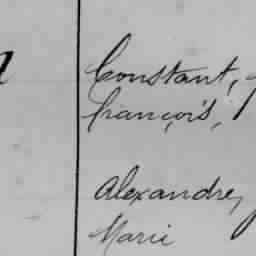 Constant,
François,
Alexandre,
Marie